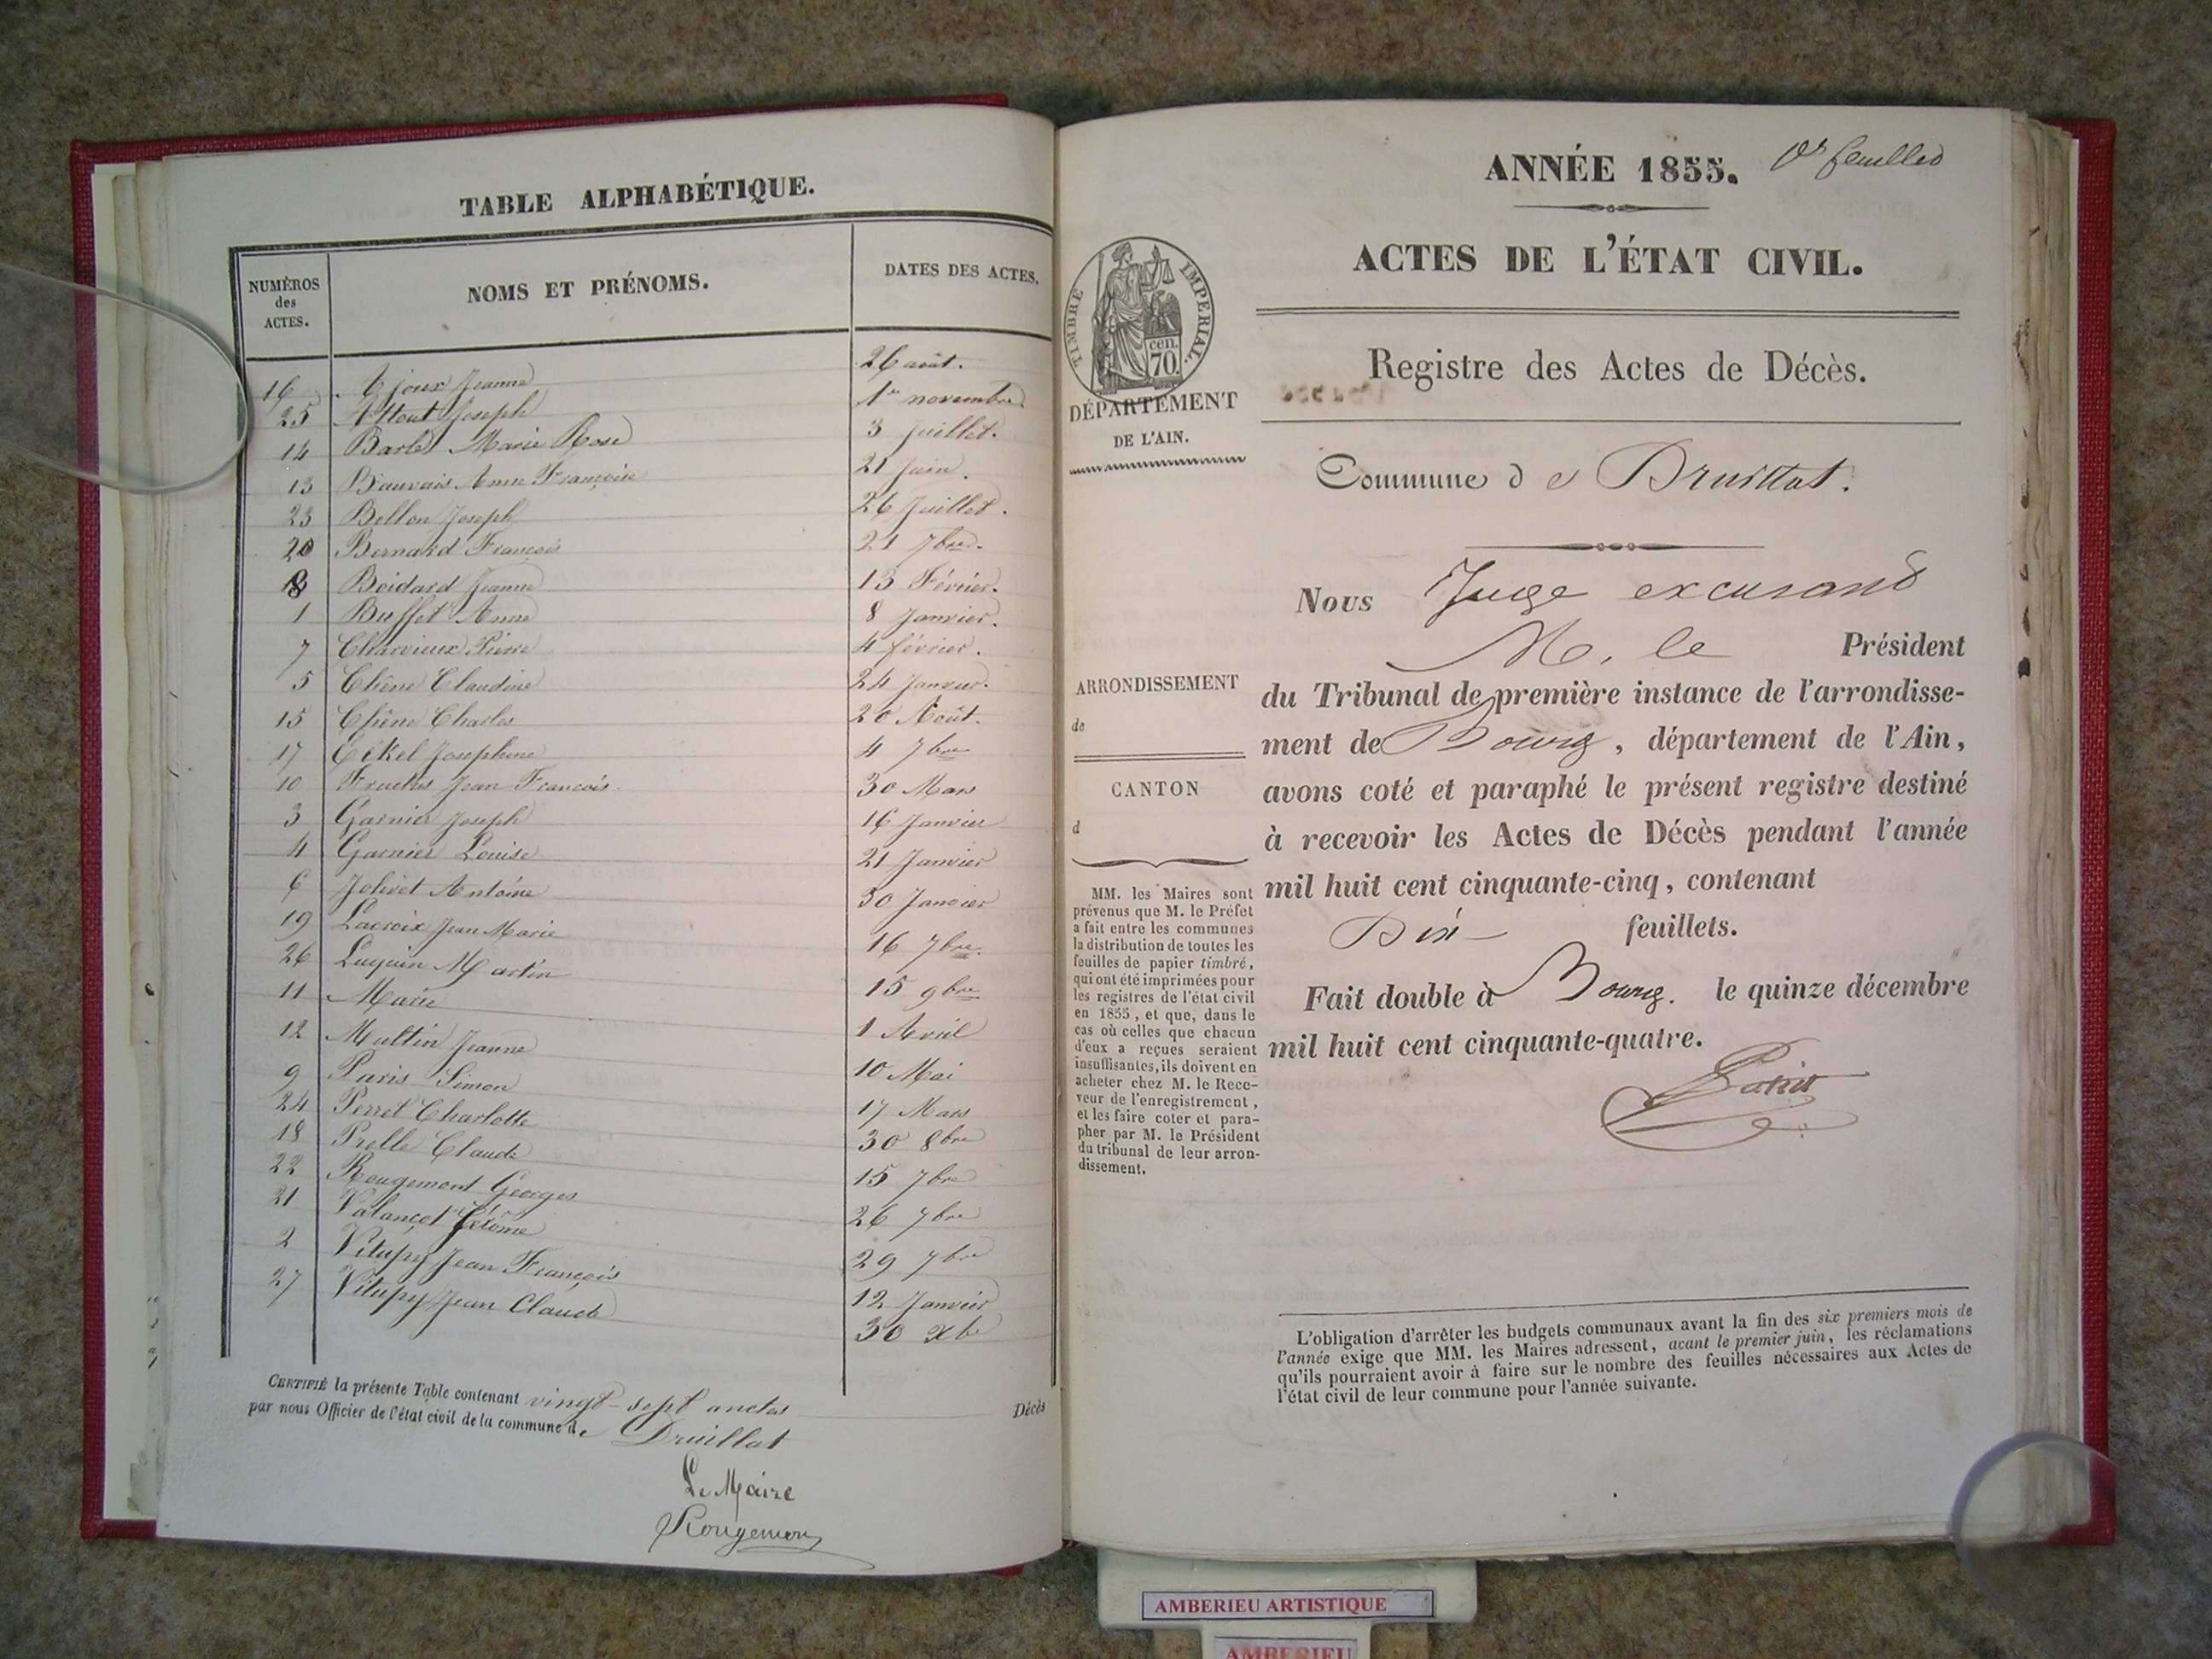 TABLE ALPHABÉTIQUE.
NUMÉROS des ACTES.
NOMS ET PRÉNOMS.
DATES DES ACTES.
16 Ajoux Jeanne 26 août.
25 Attout Joseph 1er novembre
14 Barlet Marie Rose 3 Juillet.
13 Beauvais Anne Françoise 21 Juin.
23 Bellon Joseph 26 Juillet.
20 Bernard François 21 7bre.
8 Boidard Jeanne 13 Février.
1 Buffet Anne 8 Janvier.
7 Charvieux Pierre 4 février.
5 Chêne Claudine 24 Janvier.
15 Chêne Charles 20 Août.
17 Eckel Josephine 4 7bre
10 Jean François. 30 Mars
3 Garnier Joseph 16 Janvier
4 Garnier Louise 21 Janvier
6 Jolivet Antoine 30 Janvier
19 Lacroix Jean Marie 16 7bre.
26 Luquin Martin 15 9bre
11 Marie 1 Avril
12 Multin Jeanne 10 Mai
9 Paris Simon 17 Mars
24 Perret Charlotte 30 8bre
18 Prelle Claude 15 7bre
22 Rougemont Georges 26 7bre
21 Valançot Jérôme 29 7bre
2 Vitupy Jean François 12 Janvier
27 Vitupy Jean Claude 30 Xbre
CERTIFIÉ la présente Table contenant vingt-sept anctes Décès
par nous Officier de l'état civil de la commune de Druillat
Le Maire
Rougemont
ANNÉE 1855. feuilles
ACTES DE L'ÉTAT CIVIL.
TIMBRE IMPÉRIAL.
cen.
70.
Registre des Actes de Décès.
DÉPARTEMENT
DE L'AIN.
Commune de Druillat.
Nous Juge excusant
M. le Président
du Tribunal de première instance de l'arrondisse-
ment de Bourg, département de l'Ain,
avons coté et paraphé le présent registre destiné
à recevoir les Actes de Décès pendant l'année
mil huit cent cinquante-cinq, contenant
Dix feuillets.
Fait double à Bourg. le quinze décembre
mil huit cent cinquante-quatre.
ARRONDISSEMENT
de
CANTON
d
MM. les Maires sont
prévenus que M. le Préfet
a fait entre les communes
la distribution de toutes les
feuilles de papier timbré,
qui ont été imprimées pour
les registres de l'état civil
en 1855, et que, dans le
cas où celles que chacun
d'eux a reçues seraient
insuffisantes, ils doivent en
acheter chez M. le Rece-
veur de l'enregistrement,
et les faire coter et para-
pher par M. le Président
du tribunal de leur arron-
dissement.
L'obligation d'arrêter les budgets communaux avant la fin des six premiers mois de
l'année exige que MM. les Maires adressent, avant le premier juin, les réclamations
qu'ils pourraient avoir à faire sur le nombre des feuilles nécessaires aux Actes de
l'état civil de leur commune pour l'année suivante.
AMBERIEU ARTISTIQUE
AMBERIEU